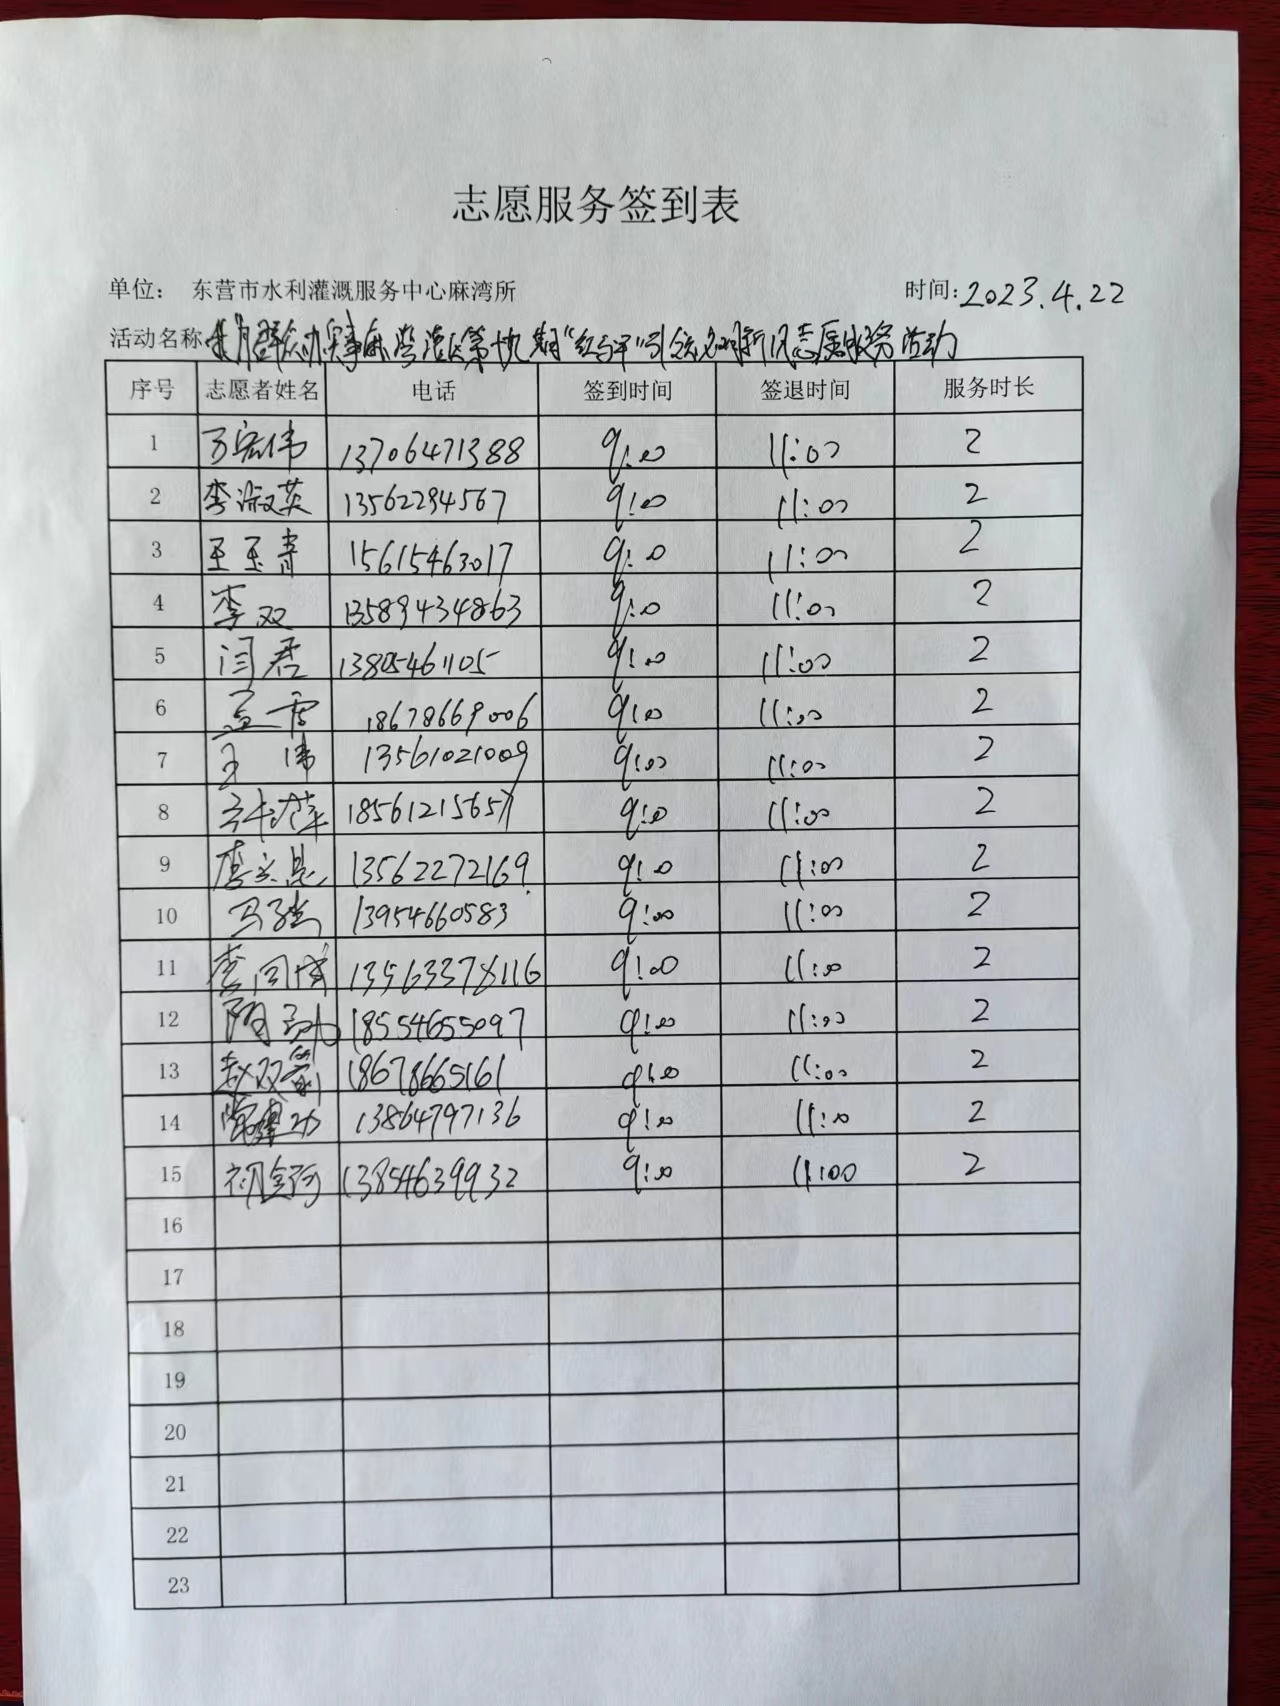 志愿服务签到表
单位： 东营市水利灌溉服务中心麻湾所 时间:2023.4.22
活动名称 我为群众办实事 第十九期"红马甲"引领文明新风志愿服务活动
序号 志愿者姓名 电话 签到时间 签退时间 服务时长
1 万宏伟 13706471388 9:00 11:00 2
2 李淑英 13562294567 9:00 11:00 2
3 王玉青 15615463017 9:00 11:00 2
4 李双 13589434863 9:00 11:00 2
5 闫君 13805461105 9:00 11:00 2
6 孟雪 18678669006 9:00 11:00 2
7 王伟 13561021009 9:00 11:00 2
8 9:00 11:00 2
9 13562272169 9:00 11:00 2
10 13954660583 9:00 11:00 2
11 13563378116 9:00 11:00 2
12 18554655097 9:00 11:00 2
13 18678665161 9:00 11:00 2
14 13864797136 9:00 11:00 2
15 13854639932 9:00 11:00 2
16
17
18
19
20
21
22
23